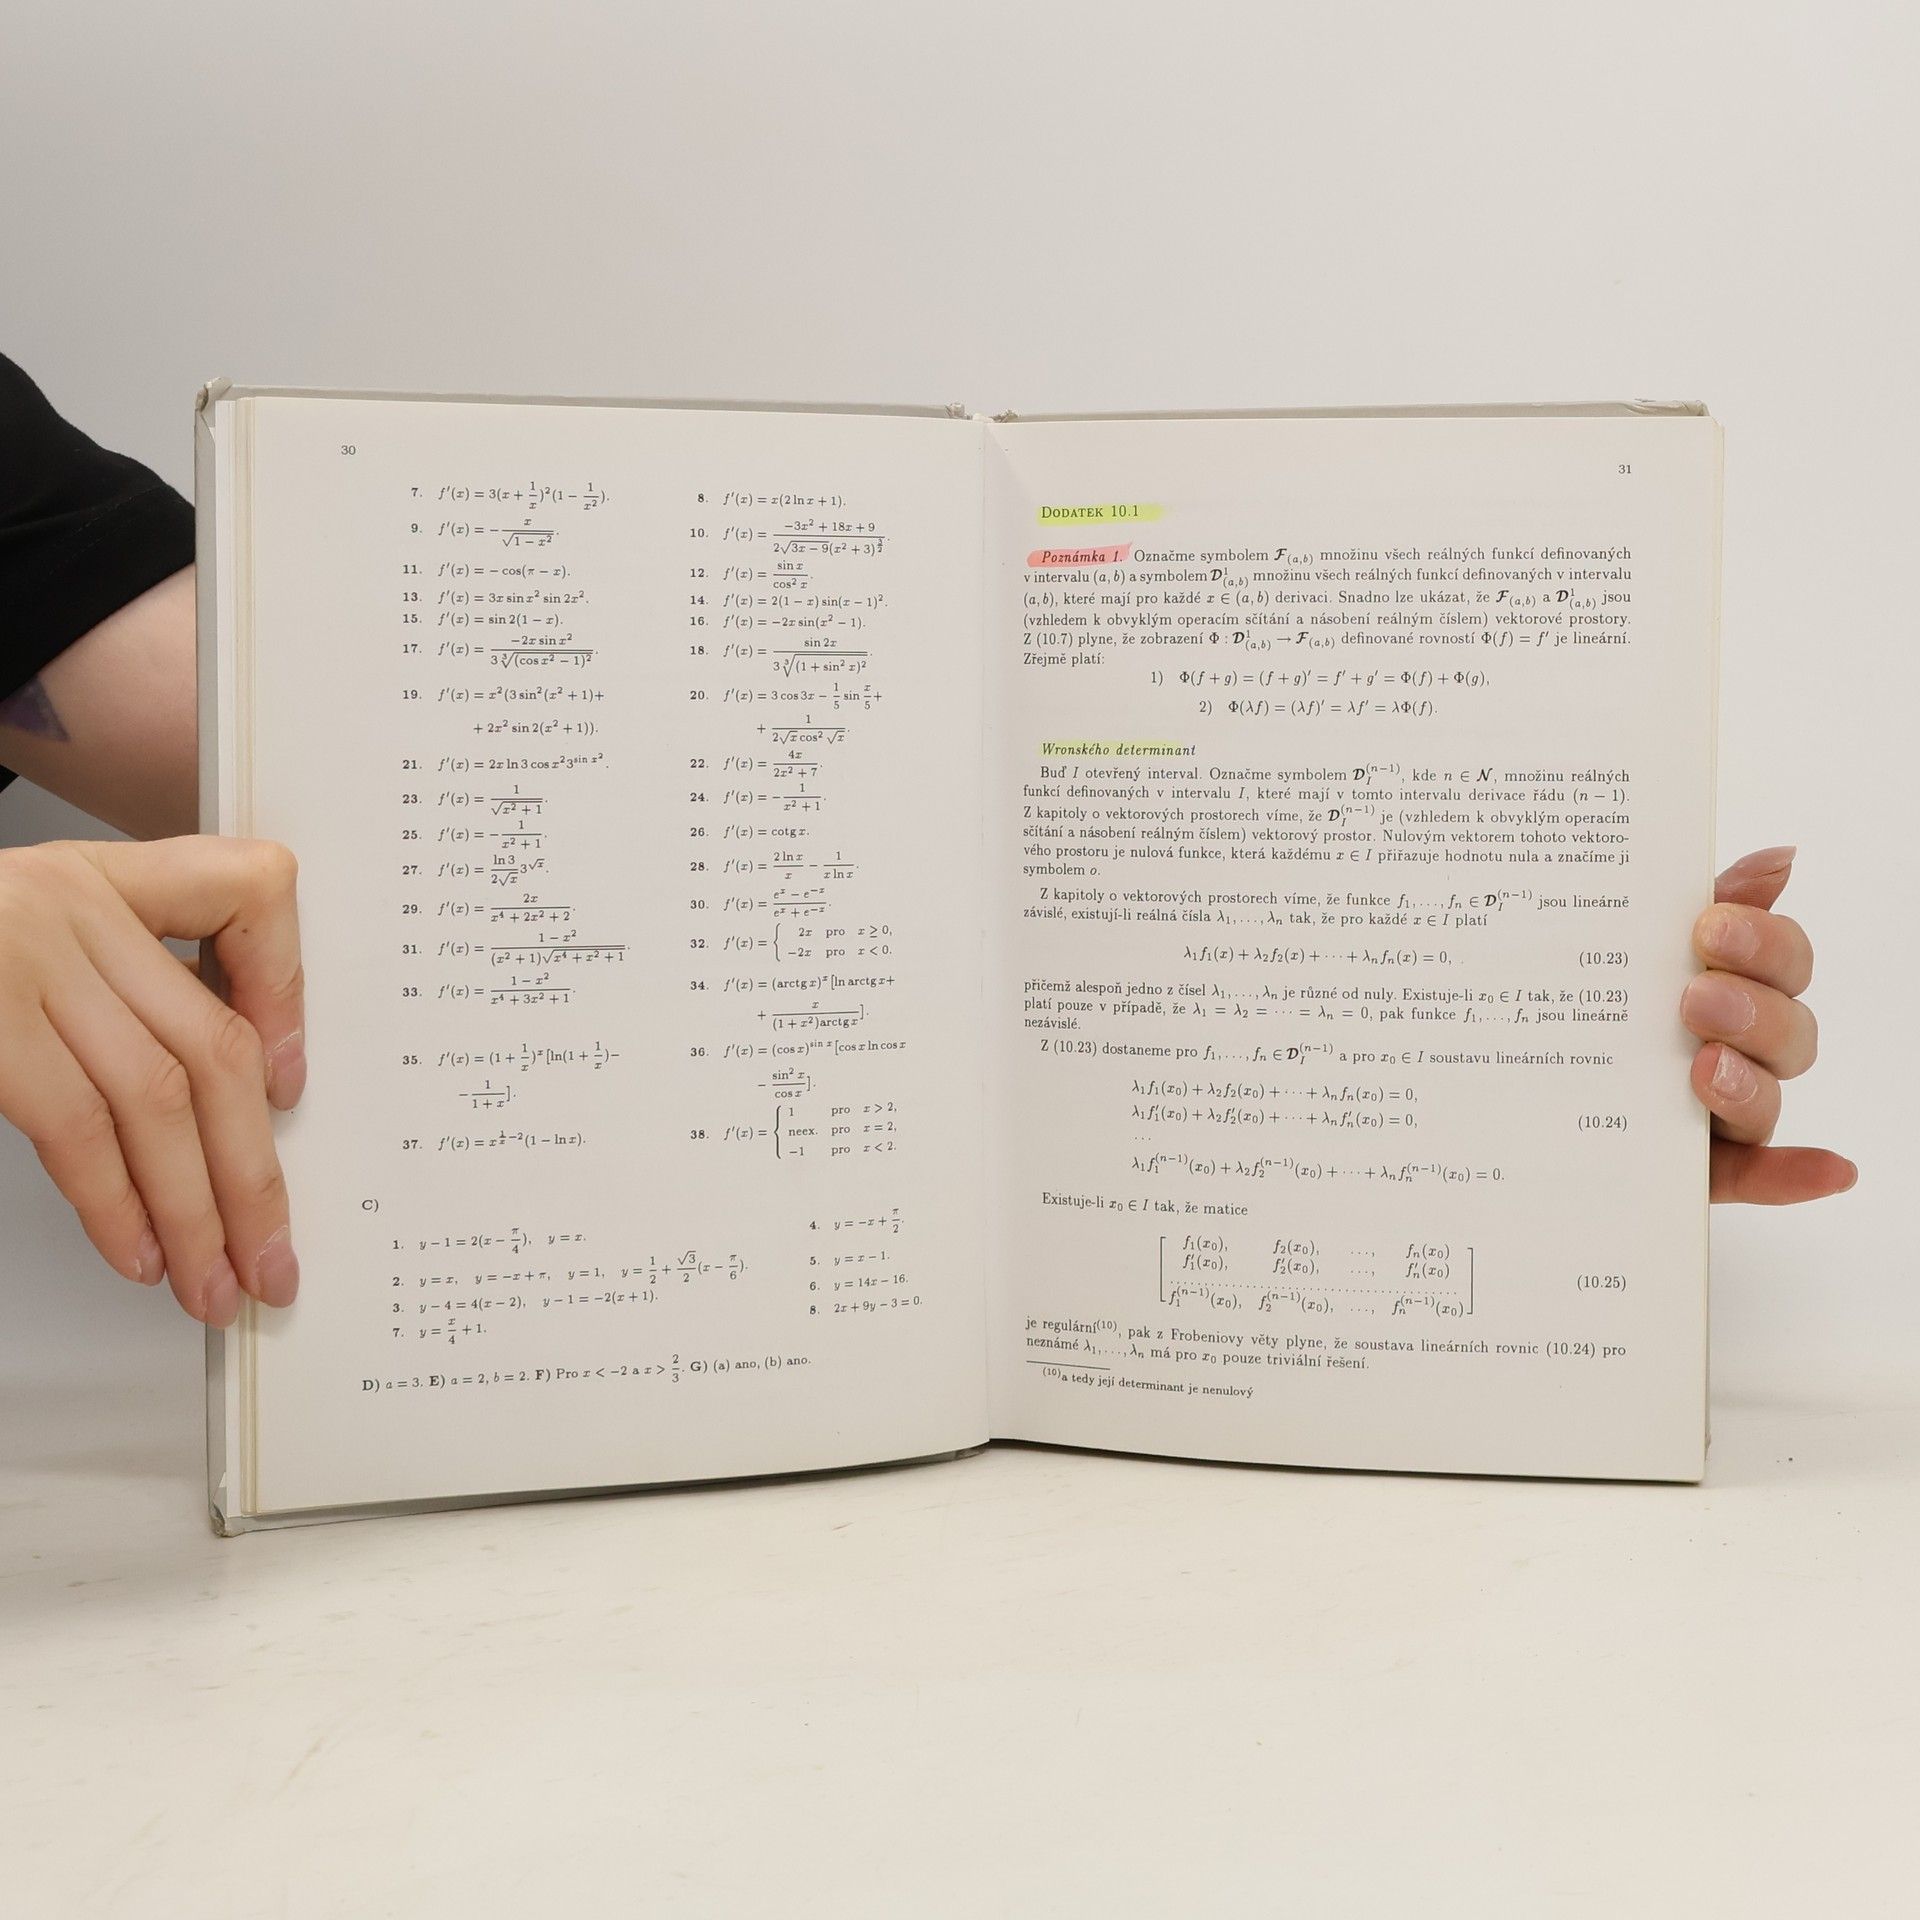 30
7. f′(x) = 3(x + 1/x)²(1 − 1/x²).
8. f′(x) = x(2 ln x + 1).
9. f′(x) = −x/√(1 − x²).
10. f′(x) = (−3x² + 18x + 9)/(2√(3x − 9)(x² + 3)^(3/2)).
11. f′(x) = − cos(π − x).
12. f′(x) = sin x/cos² x.
13. f′(x) = 3x sin x² sin 2x².
14. f′(x) = 2(1 − x) sin(x − 1)².
15. f′(x) = sin 2(1 − x).
16. f′(x) = −2x sin(x² − 1).
17. f′(x) = −2x sin x²/(3∛(cos x² − 1)²).
18. f′(x) = sin 2x/(3∛(1 + sin² x)²).
19. f′(x) = x²(3 sin²(x² + 1)+
+ 2x² sin 2(x² + 1)).
20. f′(x) = 3 cos 3x − 1/5 sin x/5 +
+ 1/(2√x cos² √x).
21. f′(x) = 2x ln 3 cos x² 3^(sin x²).
22. f′(x) = 4x/(2x² + 7).
23. f′(x) = 1/√(x² + 1).
24. f′(x) = −1/(x² + 1).
25. f′(x) = −1/(x² + 1).
26. f′(x) = cotg x.
27. f′(x) = ln 3/(2√x) 3^(√x).
28. f′(x) = 2 ln x/x − 1/(x ln x).
29. f′(x) = 2x/(x⁴ + 2x² + 2).
30. f′(x) = (eˣ − e⁻ˣ)/(eˣ + e⁻ˣ).
31. f′(x) = (1 − x²)/((x² + 1)√(x⁴ + x² + 1)).
32. f′(x) = { 2x pro x ≥ 0,
−2x pro x < 0.
33. f′(x) = (1 − x²)/(x⁴ + 3x² + 1).
34. f′(x) = (arctg x)ˣ [ln arctg x+
+ x/((1 + x²)arctg x)].
35. f′(x) = (1 + 1/x)ˣ[ln(1 + 1/x)−
− 1/(1 + x)].
36. f′(x) = (cos x)^(sin x) [cos x ln cos x
− sin² x/cos x].
37. f′(x) = x^(1/x − 2)(1 − ln x).
38. f′(x) = { 1 pro x > 2,
neex. pro x = 2,
−1 pro x < 2.
C)
1. y − 1 = 2(x − π/4), y = x.
2. y = x, y = −x + π, y = 1, y = 1/2 + √3/2(x − π/6).
3. y − 4 = 4(x − 2), y − 1 = −2(x + 1).
7. y = x/4 + 1.
4. y = −x + π/2.
5. y = x − 1.
6. y = 14x − 16.
8. 2x + 9y − 3 = 0.
D) a = 3. E) a = 2, b = 2. F) Pro x < −2 a x > 2/3. G) (a) ano, (b) ano.
31
DODATEK 10.1
Poznámka 1. Označme symbolem 𝓕(a,b) množinu všech reálných funkcí definovaných
v intervalu (a, b) a symbolem 𝓓¹(a,b) množinu všech reálných funkcí definovaných v intervalu
(a, b), které mají pro každé x ∈ (a, b) derivaci. Snadno lze ukázat, že 𝓕(a,b) a 𝓓¹(a,b) jsou
(vzhledem k obvyklým operacím sčítání a násobení reálným číslem) vektorové prostory.
Z (10.7) plyne, že zobrazení Φ : 𝓓¹(a,b) → 𝓕(a,b) definované rovností Φ(f) = f′ je lineární.
Zřejmě platí:
1) Φ(f + g) = (f + g)′ = f′ + g′ = Φ(f) + Φ(g),
2) Φ(λf) = (λf)′ = λf′ = λΦ(f).
Wronského determinant
Buď I otevřený interval. Označme symbolem 𝓓_I^(n−1), kde n ∈ 𝓝, množinu reálných
funkcí definovaných v intervalu I, které mají v tomto intervalu derivace řádu (n − 1).
Z kapitoly o vektorových prostorech víme, že 𝓓_I^(n−1) je (vzhledem k obvyklým operacím
sčítání a násobení reálným číslem) vektorový prostor. Nulovým vektorem tohoto vektoro-
vého prostoru je nulová funkce, která každému x ∈ I přiřazuje hodnotu nula a značíme ji
symbolem o.
Z kapitoly o vektorových prostorech víme, že funkce f₁, . . . , fₙ ∈ 𝓓_I^(n−1) jsou lineárně
závislé, existují-li reálná čísla λ₁, . . . , λₙ tak, že pro každé x ∈ I platí
λ₁f₁(x) + λ₂f₂(x) + · · · + λₙfₙ(x) = 0, (10.23)
přičemž alespoň jedno z čísel λ₁, . . . , λₙ je různé od nuly. Existuje-li x₀ ∈ I tak, že (10.23)
platí pouze v případě, že λ₁ = λ₂ = · · · = λₙ = 0, pak funkce f₁, . . . , fₙ jsou lineárně
nezávislé.
Z (10.23) dostaneme pro f₁, . . . , fₙ ∈ 𝓓_I^(n−1) a pro x₀ ∈ I soustavu lineárních rovnic
λ₁f₁(x₀) + λ₂f₂(x₀) + · · · + λₙfₙ(x₀) = 0,
λ₁f₁′(x₀) + λ₂f₂′(x₀) + · · · + λₙfₙ′(x₀) = 0, (10.24)
. . .
λ₁f₁^(n−1)(x₀) + λ₂f₂^(n−1)(x₀) + · · · + λₙfₙ^(n−1)(x₀) = 0.
Existuje-li x₀ ∈ I tak, že matice
f₁(x₀), f₂(x₀), . . . , fₙ(x₀)
f₁′(x₀), f₂′(x₀), . . . , fₙ′(x₀)
. . . . . . . . . . . . . . . . . . . . (10.25)
f₁^(n−1)(x₀), f₂^(n−1)(x₀), . . . , fₙ^(n−1)(x₀)
je regulární⁽¹⁰⁾, pak z Frobeniovy věty plyne, že soustava lineárních rovnic (10.24) pro
neznámé λ₁, . . . , λₙ má pro x₀ pouze triviální řešení.
⁽¹⁰⁾a tedy její determinant je nenulový